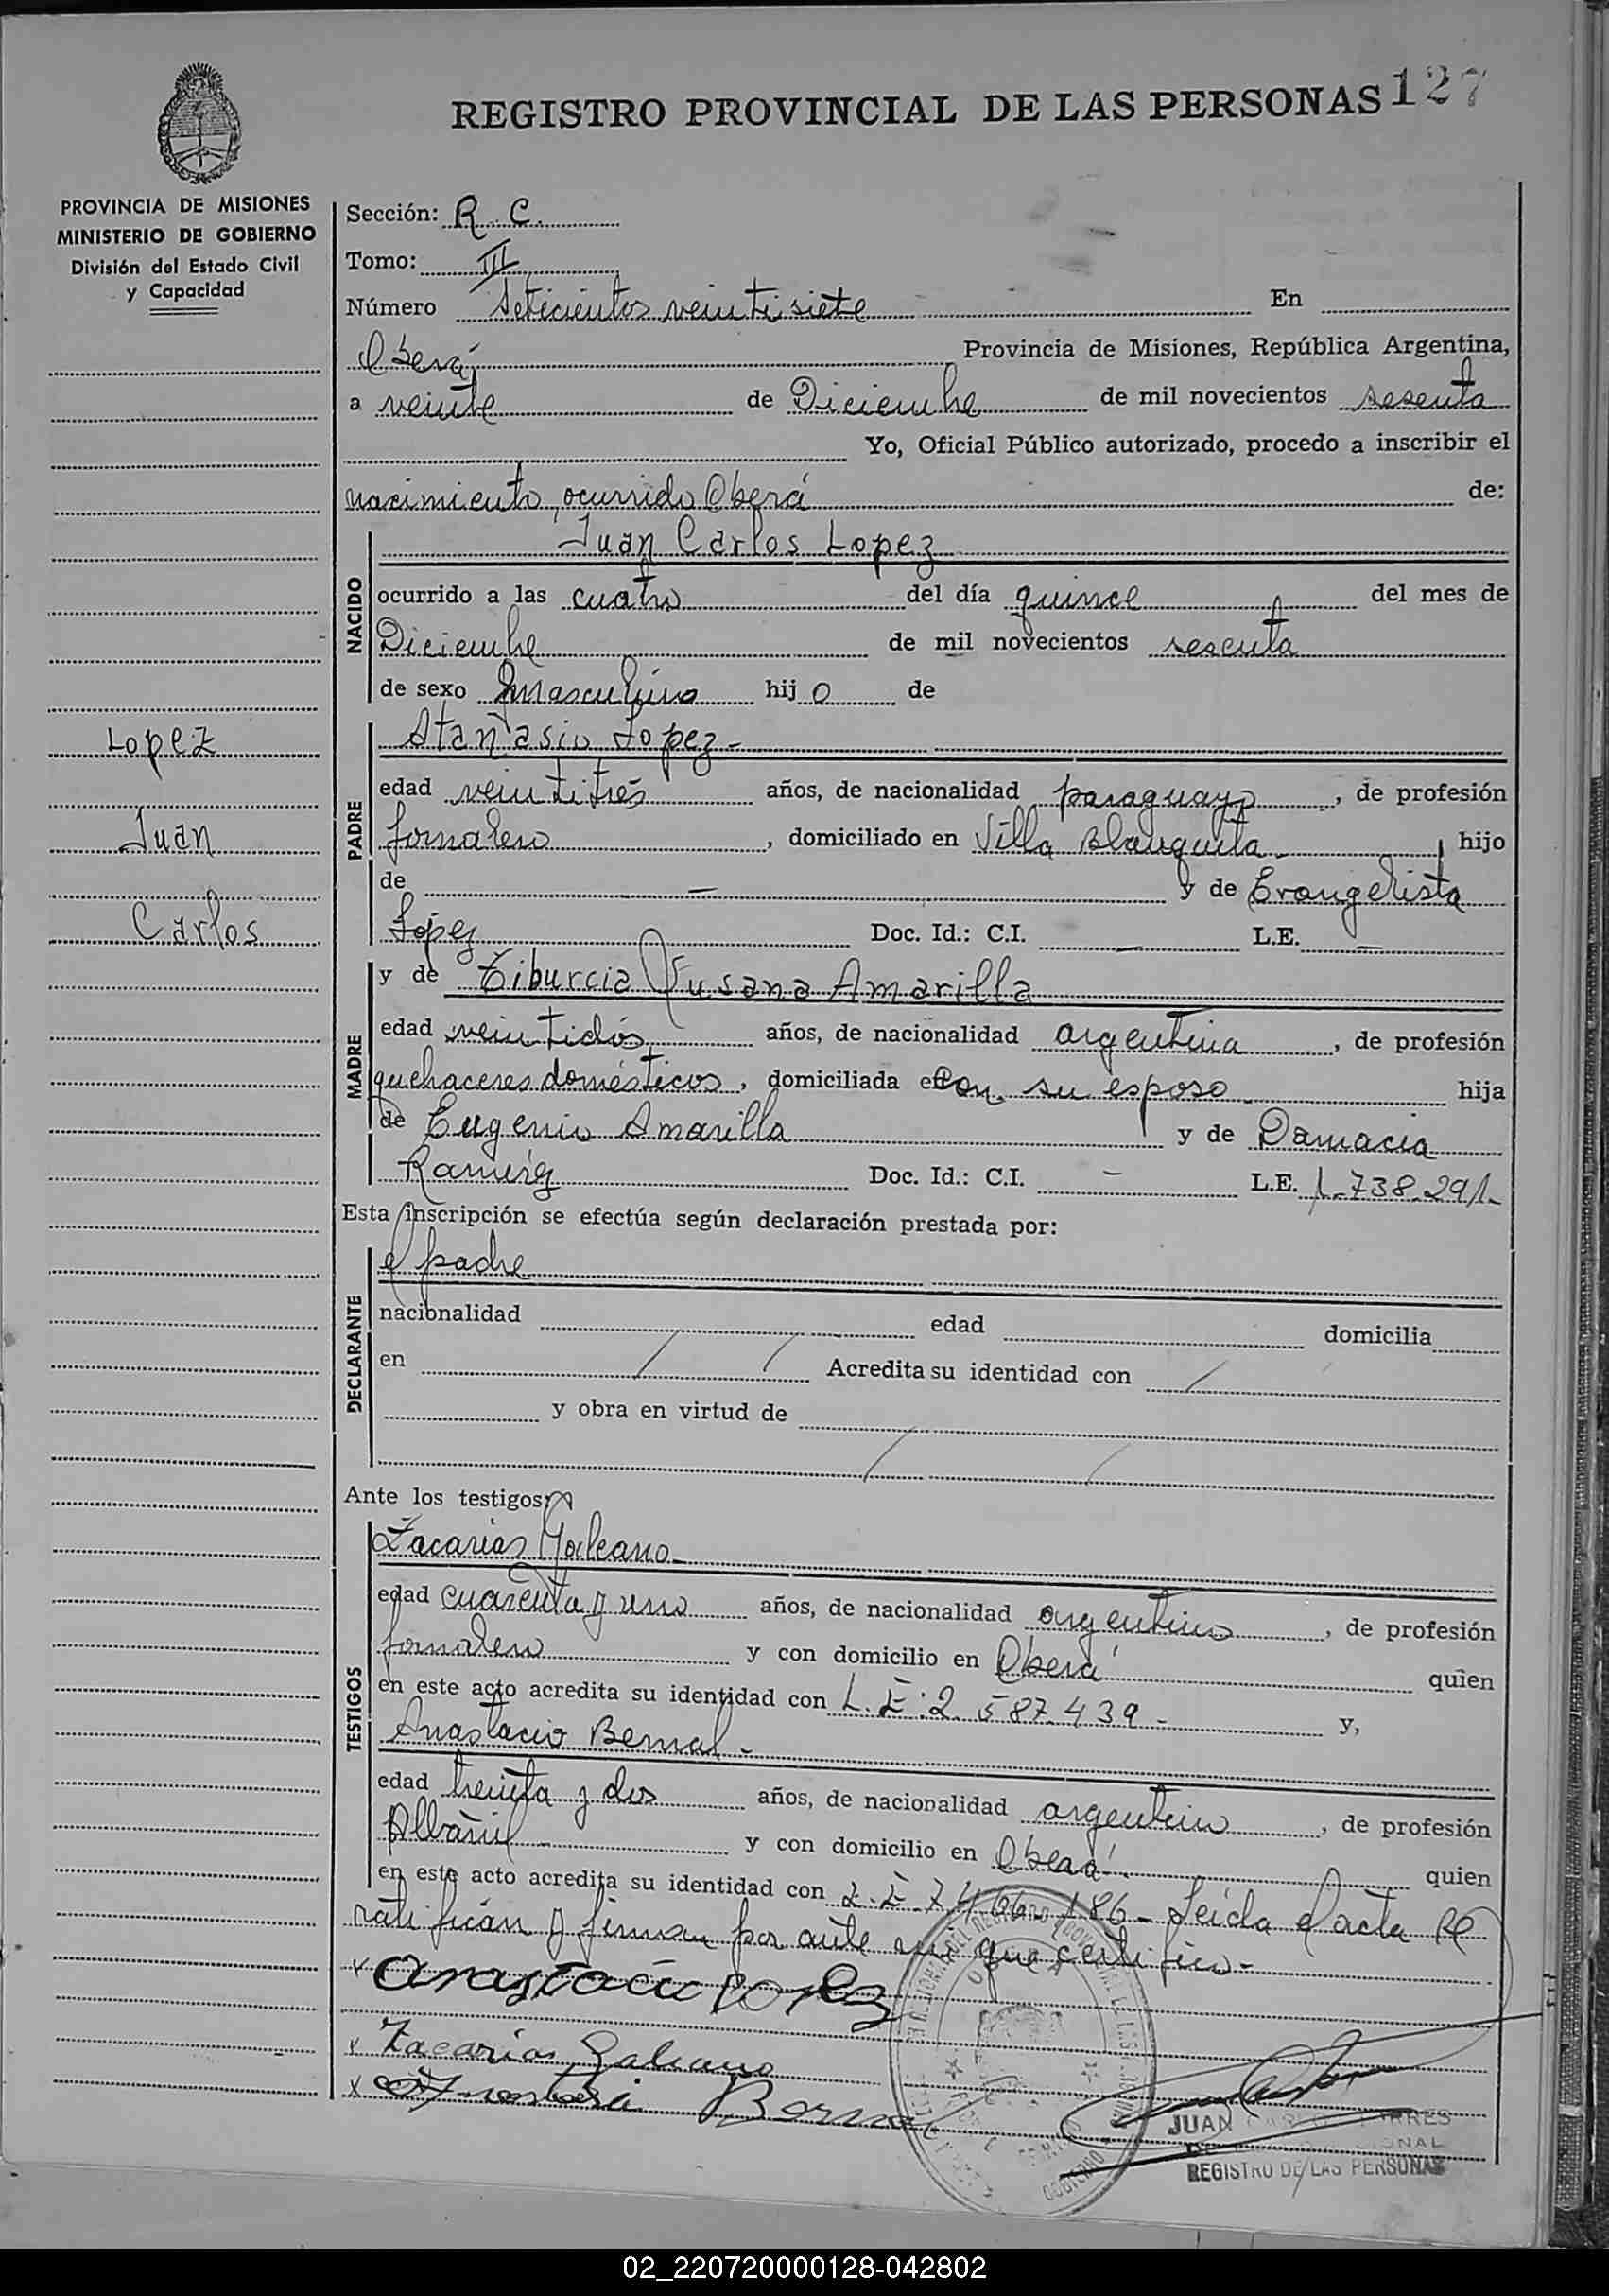 REGISTRO PROVINCIAL DE LAS PERSONAS 127
PROVINCIA DE MISIONES
MINISTERIO DE GOBIERNO
División del Estado Civil
y Capacidad
Sección: R. C.
Tomo: III
Número Seticientos veintisiete En
Oberá Provincia de Misiones, República Argentina,
a veinte de Diciembre de mil novecientos sesenta
Yo, Oficial Público autorizado, procedo a inscribir el
nacimiento, ocurrido Oberá de:
NACIDO
Juan Carlos Lopez
ocurrido a las cuatro del día quince del mes de
Diciembre de mil novecientos sesenta
de sexo masculino hijo de
Lopez
Juan
Carlos
PADRE
Atanasio Lopez -
edad veintitrés años, de nacionalidad paraguayo, de profesión
Jornalero, domiciliado en Villa Blanquita hijo
de — y de Evangelista
López Doc. Id.: C.I. — L.E. —
MADRE
y de Tiburcia Susana Amarilla
edad veintidós años, de nacionalidad argentina, de profesión
quehaceres domésticos, domiciliada en con su esposo hija
de Eugenio Amarilla y de Damacia
Ramírez Doc. Id.: C.I. — L.E. 1.738.291-
Esta inscripción se efectúa según declaración prestada por:
DECLARANTE
el padre
nacionalidad edad domicilia
en Acredita su identidad con
y obra en virtud de
Ante los testigos:
TESTIGOS
Zacarias Galeano
edad cuarenta y uno años, de nacionalidad argentino, de profesión
jornalero y con domicilio en Oberá quien
en este acto acredita su identidad con L.E: 2.587.439 - y,
Anastacio Bernal -
edad treinta y dos años, de nacionalidad argentino, de profesión
Albañil y con domicilio en Oberá quien
en este acto acredita su identidad con L.E 7.466.186 - Leída el acta la
ratifican y firman por ante mi que certifico -
x anastacio lopez
x Zacarias Galeano
x Bernal
JUAN CARLOS TORRES
REGISTRO DE LAS PERSONAS
02_220720000128-042802